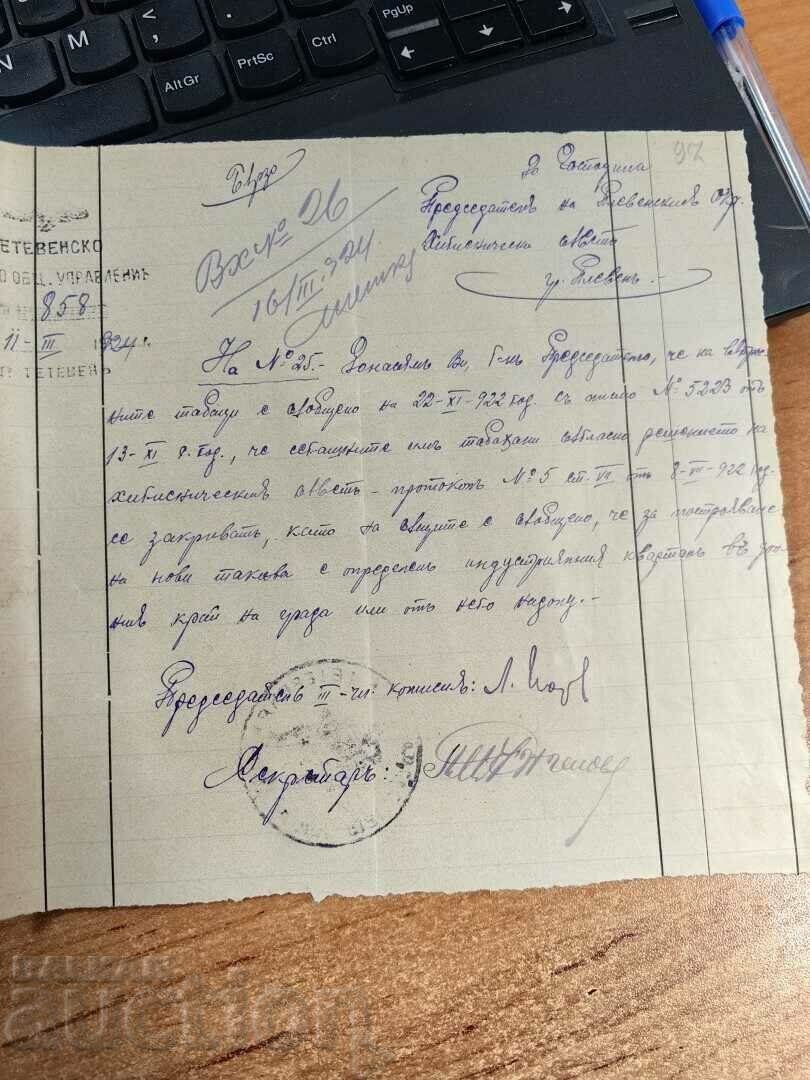 PgUp
M
<
>
N
Ctrl
PrtSc
AltGr
97
Бързо
До Господина
Председателя на Плевенския Окр.
Хигиенически съветъ
гр. Плевенъ.-
Вх. № 26
16/III.924
ТЕТЕВЕНСКО
ОБЩ. УПРАВЛЕНИЕ
№ 858
11-III 1924 г.
ТЕТЕВЕНЪ
На № 25.- Донасямъ Ви, Г-нъ Председателю, че на
ните табаци е съобщено на 22-XI-922 год. съ писмо № 5223 отъ
13-XI с. год., че сегашните имъ табахани съгласно решението на
хигиеническия съветъ - протоколъ № 5 ст. VII отъ 8-VII-922 год.
се закриватъ, като на същите е съобщено, че за построяване
на нови такива е определенъ индустриялния кварталъ въ дол-
ния край на града или отъ него надолу.-
Председатель III-чл. комисия: Л.
Секретарь:
BALKAN
auction